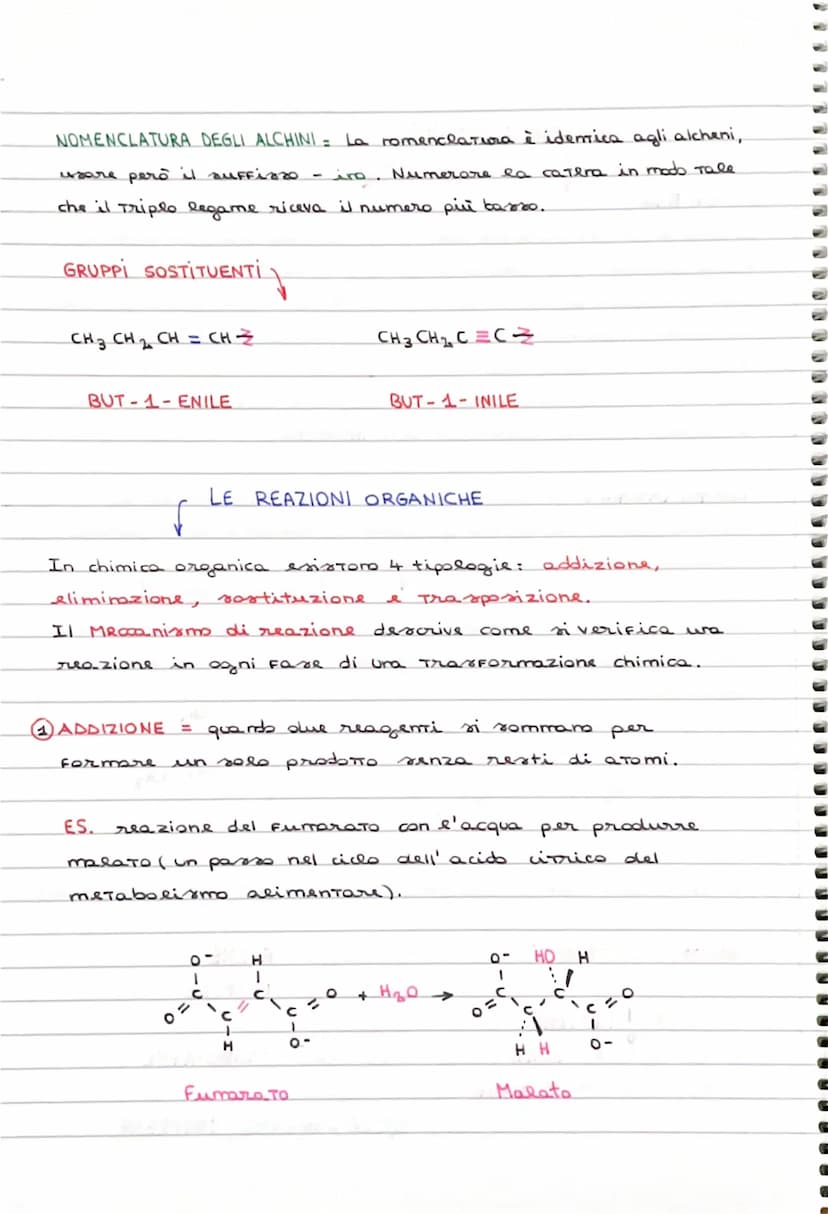 NOMENCLATURA DEGLI ALCHINI = La nomenclatura è identica agli alcheni,
usare però il suffisso - ino. Numerare la catena in modo tale
che il triplo legame riceva il numero più basso.
GRUPPI SOSTITUENTI
CH3 CH2 CH = CH CH3 CH2 C ≡ C
BUT - 1 - ENILE BUT - 1 - INILE
LE REAZIONI ORGANICHE
In chimica organica esistono 4 tipologie: addizione,
eliminazione, sostituzione e trasposizione.
Il Meccanismo di reazione descrive come si verifica una
reazione in ogni fase di una trasformazione chimica.
1 ADDIZIONE = quando due reagenti si sommano per
formare un solo prodotto senza resti di atomi.
ES. reazione del fumarato con l'acqua per produrre
malato ( un passo nel ciclo dell'acido citrico del
metabolismo alimentare).
O- H O- HO H
C C O + H2O → C C O
O C C O C C
H O- H H O-
Fumarato Malato